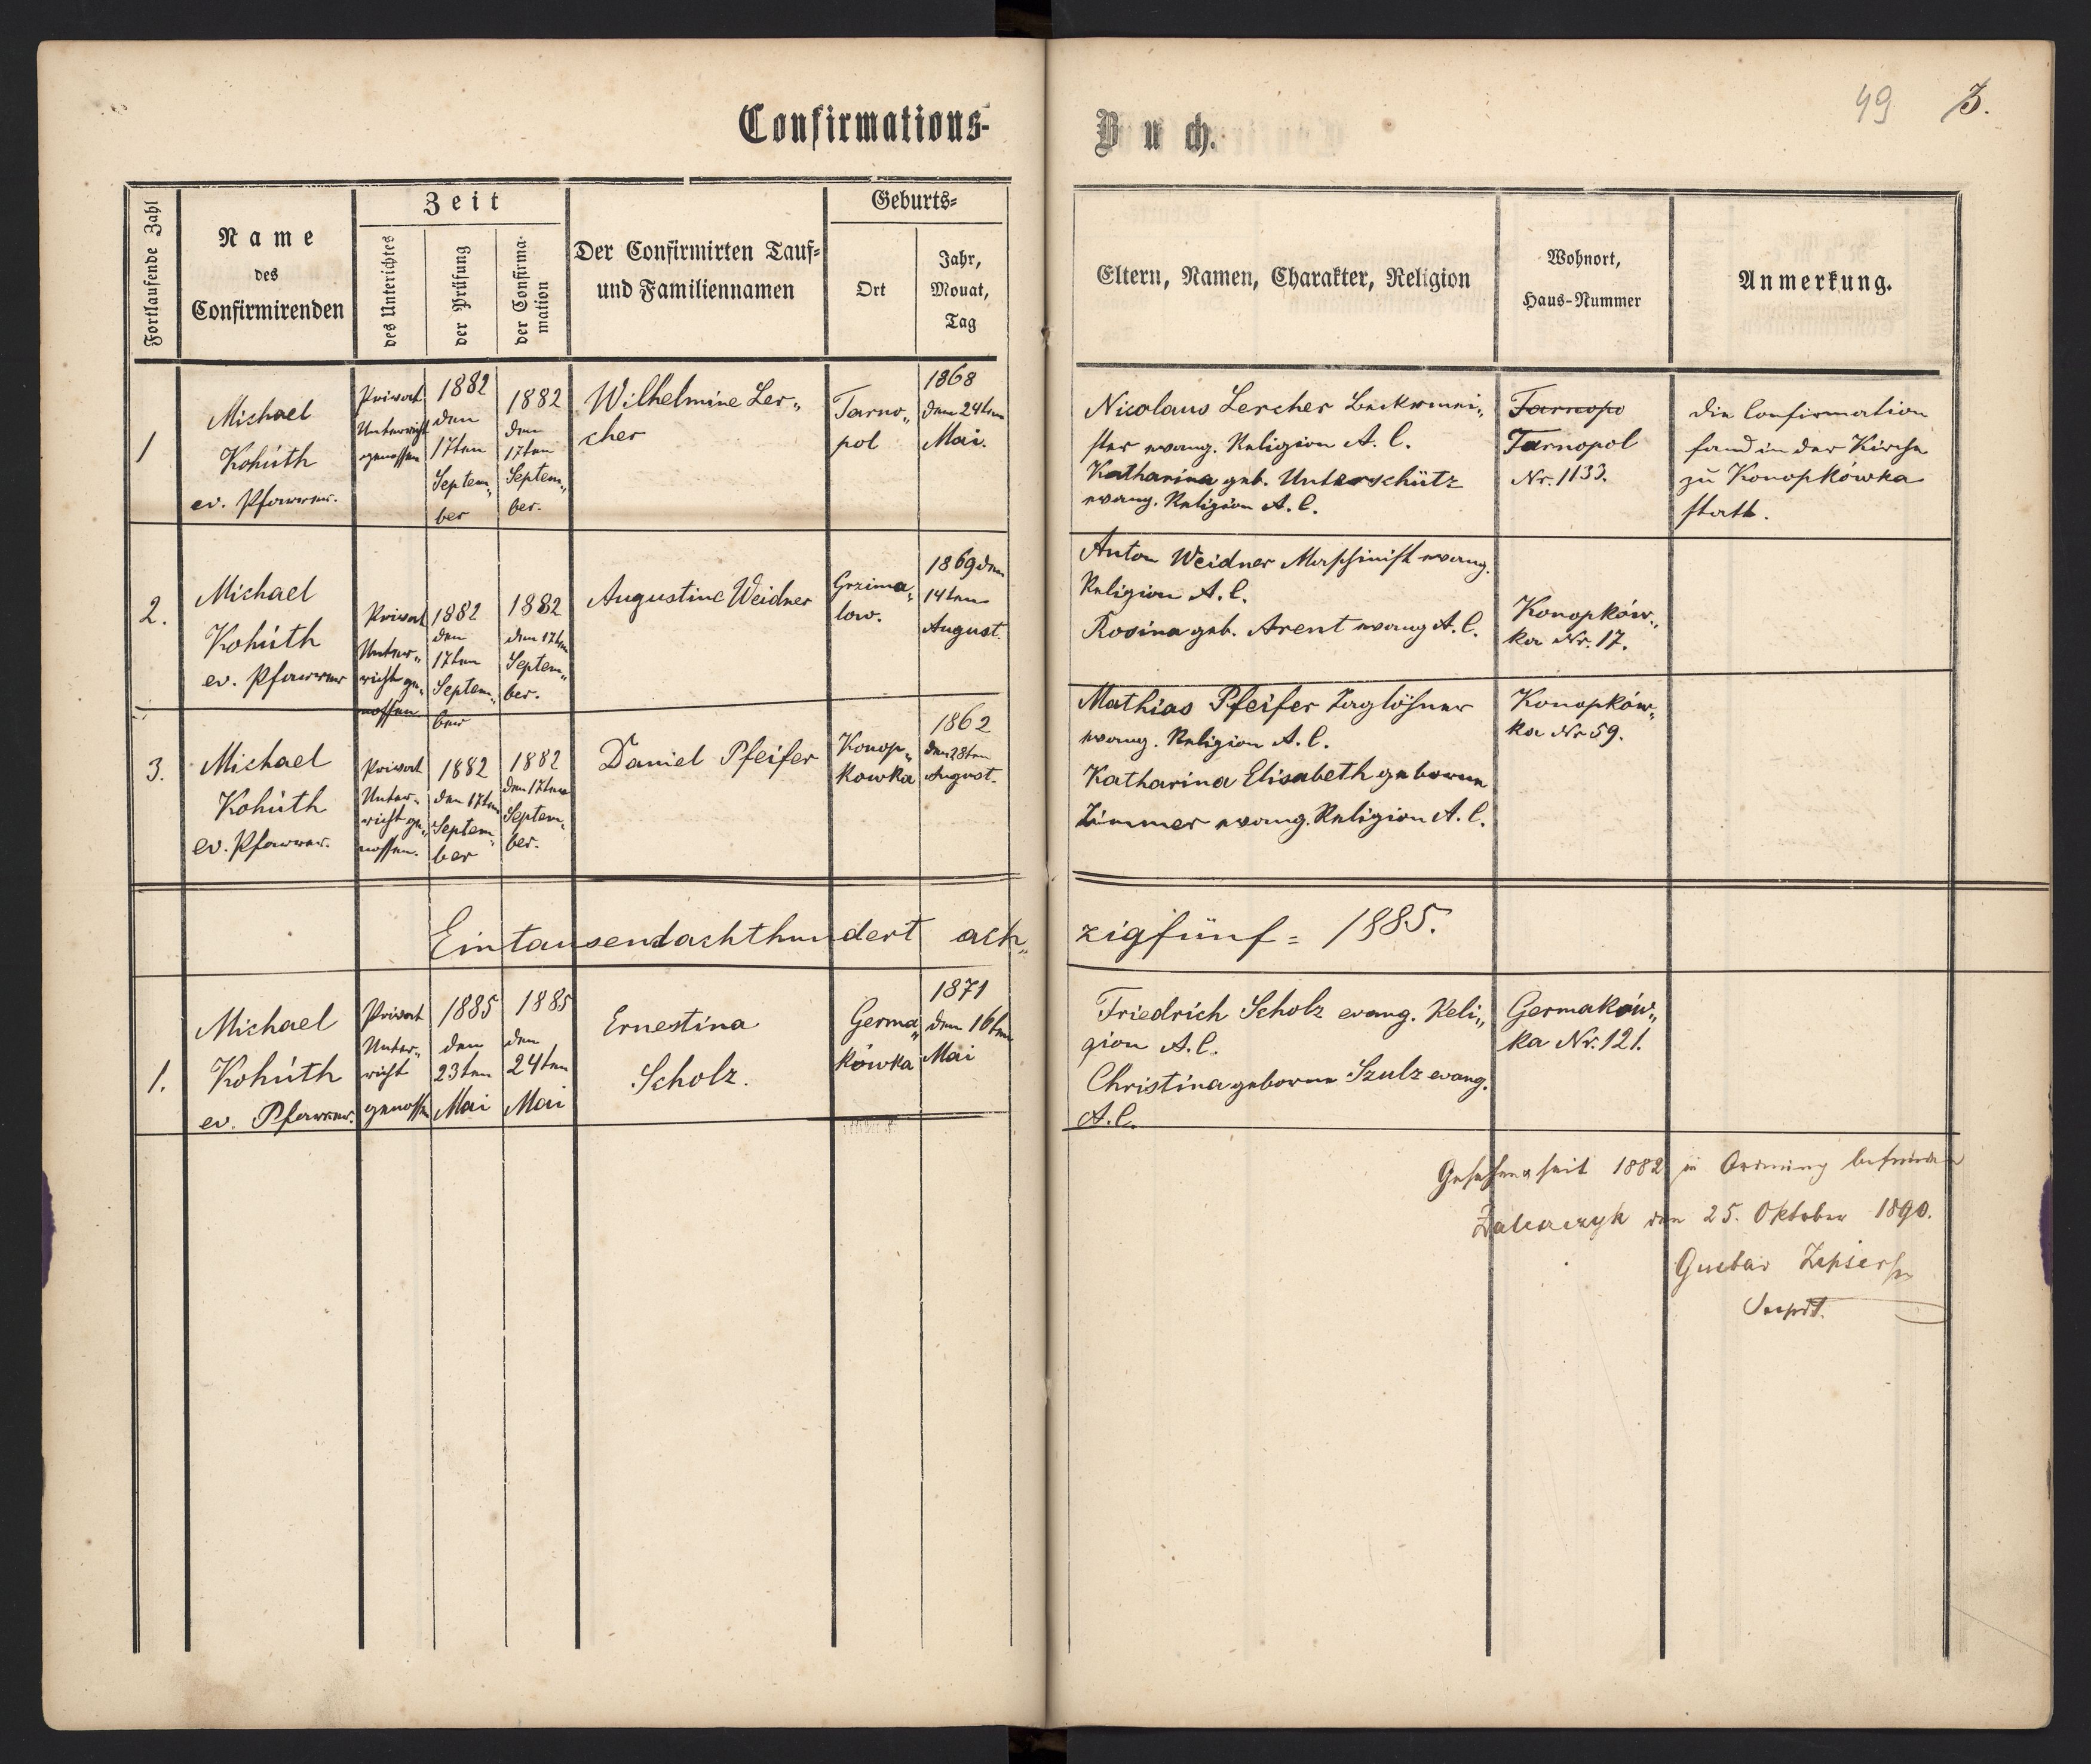 Confirmations-
Buch.
49 3.
Fortlaufende Zahl
Name
des
Confirmirenden
Zeit
des Unterichtes
der Prüfung
der Confirma-
mation
Der Confirmirten Tauf-
und Familiennamen
Geburts-
Ort
Jahr,
Monat,
Tag
Eltern, Namen, Charakter, Religion
Wohnort,
Haus-Nummer
Anmerkung.
1
Michael
Kohúth
ev. Pfarrer.
Privat
Unterricht
genossen
1882
den
17ten
Septem„
ber
1882
den
17ten
Septem„
ber.
Wilhelmine Ler„
cher
Tarno„
pol
1868
den 24ten
Mai.
Nicolaus Lercher Beckermei„
ster evang. Religion A. C.
Katharina geb. Unterschütz
evang. Religion A. C.
Tarnopo
Tarnopol
Nr. 1133.
Die Confirmation
fand in der Kirche
zu Konopkówka
statt.
2.
Michael
Kohúth
ev. Pfarrer
Privat
Unter„
richt ge„
nossen
1882
den
17ten
Septem„
ber
1882
den 17ten
Septem„
ber.
Augustine Weidner
Grzima„
low.
1869 den
14ten
August.
Anton Weidner Maschinist evang.
Religion A. C.
Rosina geb. Arent evang A. C.
Konopków„
ka Nr. 17.
3.
Michael
Kohúth
ev. Pfarrer.
Privat
Unter„
richt ge„
nossen.
1882
den 17ten
Septem„
ber
1882
den 17ten
Septem„
ber.
Daniel Pfeifer
Konop„
kowka
1862
den 28ten
August.
Mathias Pfeifer Taglöhner
evang. Religion A. C.
Katharina Elisabeth geborne
Zimmer evang. Religion A. C.
Konopków„
ka Nr 59.
Eintausendachthundert ach„
zigfünf = 1885.
1.
Michael
Kohúth
ev. Pfarrer.
Privat
Unter„
richt
genossen
1885
den
23ten
Mai
1885
den
24ten
Mai
Ernestina
Scholz.
Germa„
kówka
1871
den 16ten
Mai
Friedrich Scholz evang. Reli„
gion A. C.
Christina geborne Szulz evang.
A. C.
Germaków„
ka Nr. 121.
Gesehen seit 1882 in Ordnung befunden
den 25. Oktober 1890.
Supdt.